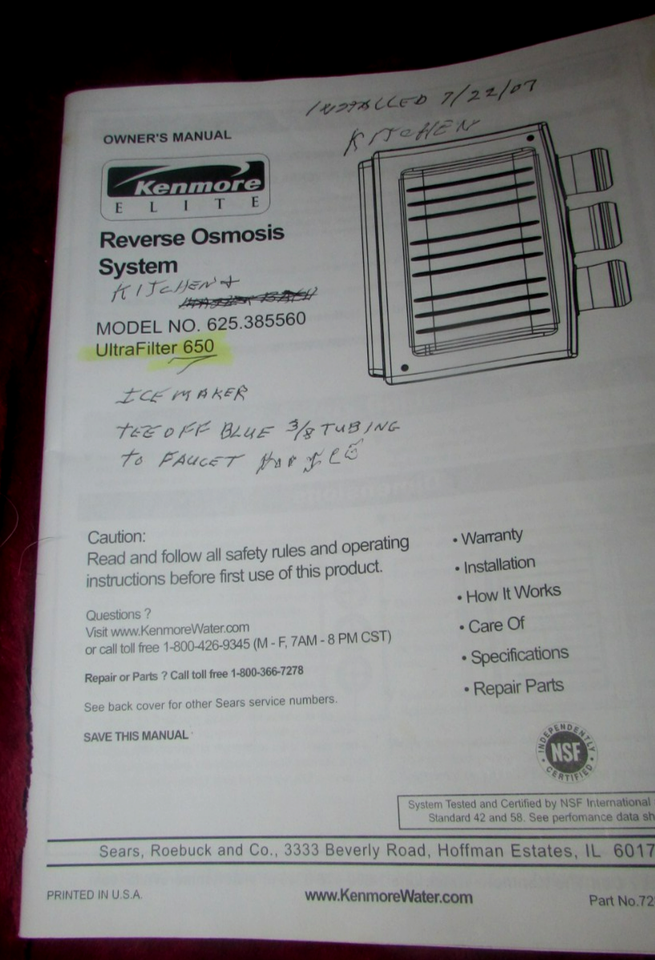 INSTALLED 7/22/07
KITCHEN
OWNER'S MANUAL
Kenmore
ELITE
Reverse Osmosis
System
KITCHEN &
MODEL NO. 625.385560
UltraFilter 650
ICE MAKER
TEE OFF BLUE 3/8 TUBING
TO FAUCET
Caution:
Read and follow all safety rules and operating
instructions before first use of this product.
Questions ?
Visit www.KenmoreWater.com
or call toll free 1-800-426-9345 (M - F, 7AM - 8 PM CST)
Repair or Parts ? Call toll free 1-800-366-7278
See back cover for other Sears service numbers.
SAVE THIS MANUAL
• Warranty
• Installation
• How It Works
• Care Of
• Specifications
• Repair Parts
INDEPENDENTLY
NSF
CERTIFIED
System Tested and Certified by NSF International
Standard 42 and 58. See perfomance data sh
Sears, Roebuck and Co., 3333 Beverly Road, Hoffman Estates, IL 6017
PRINTED IN U.S.A.
www.KenmoreWater.com
Part No.72